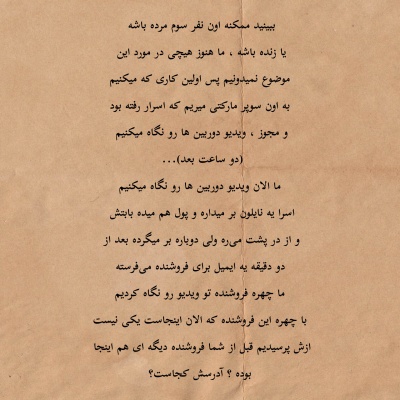 ببینید ممکنه اون نفر سوم مرده باشه
یا زنده باشه ، ما هنوز هیچی در مورد این
موضوع نمیدونیم پس اولین کاری که میکنیم
به اون سوپر مارکتی میریم که اسرار رفته بود
و مجوز ، ویدیو دوربین ها رو نگاه میکنیم
(دو ساعت بعد)...
ما الان ویدیو دوربین ها رو نگاه میکنیم
اسرا یه نایلون بر میداره و پول هم میده بابتش
و از در پشت می‌ره ولی دوباره بر میگرده بعد از
دو دقیقه یه ایمیل برای فروشنده می‌فرسته
ما چهره فروشنده تو ویدیو رو نگاه کردیم
با چهره این فروشنده که الان اینجاست یکی نیست
ازش پرسیدیم قبل از شما فروشنده دیگه ای هم اینجا
بوده ؟ آدرسش کجاست؟